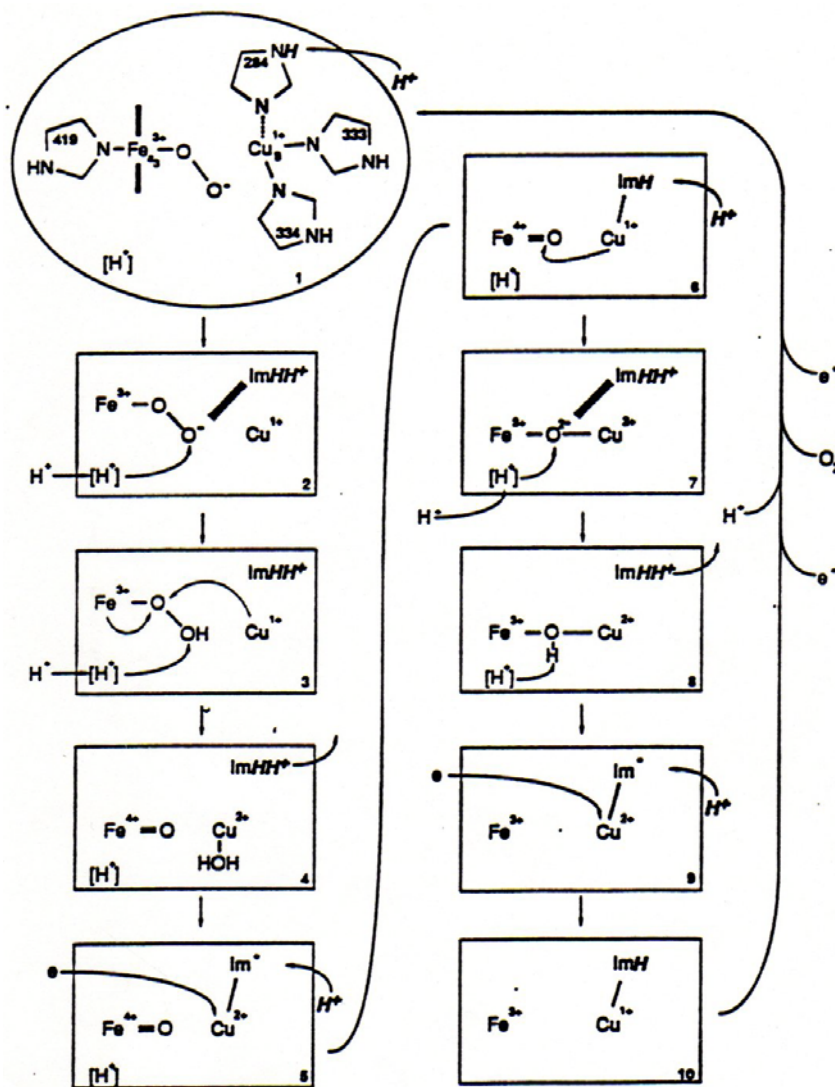 284 NH
H⁺
419
HN
N
Fe 3+ a3
O
O⁻
N
Cu 1+ B
N
333
NH
N
334
NH
[H⁺]
1
Fe 3+
O
O⁻
ImHH⁺
Cu 1+
H⁺ [H⁺]
2
Fe 3+
O
OH
ImHH⁺
Cu 1+
H⁺ [H⁺]
3
ImHH⁺
Fe 4+ = O
Cu 2+
HOH
[H⁺]
4
e
Im⁻
H⁺
Fe 4+ = O
Cu 2+
[H⁺]
5
ImH
H⁺
Fe 4+ = O
Cu 1+
[H⁺]
6
ImHH⁺
Fe 3+ O 2- Cu 2+
[H⁺]
7
H⁺
H⁺
ImHH⁺
Fe 3+ O Cu 2+
H
[H⁺]
8
e
Im⁻
H⁺
Fe 3+
Cu 2+
9
ImH
Fe 3+
Cu 1+
10
e⁻
O₂
e⁻